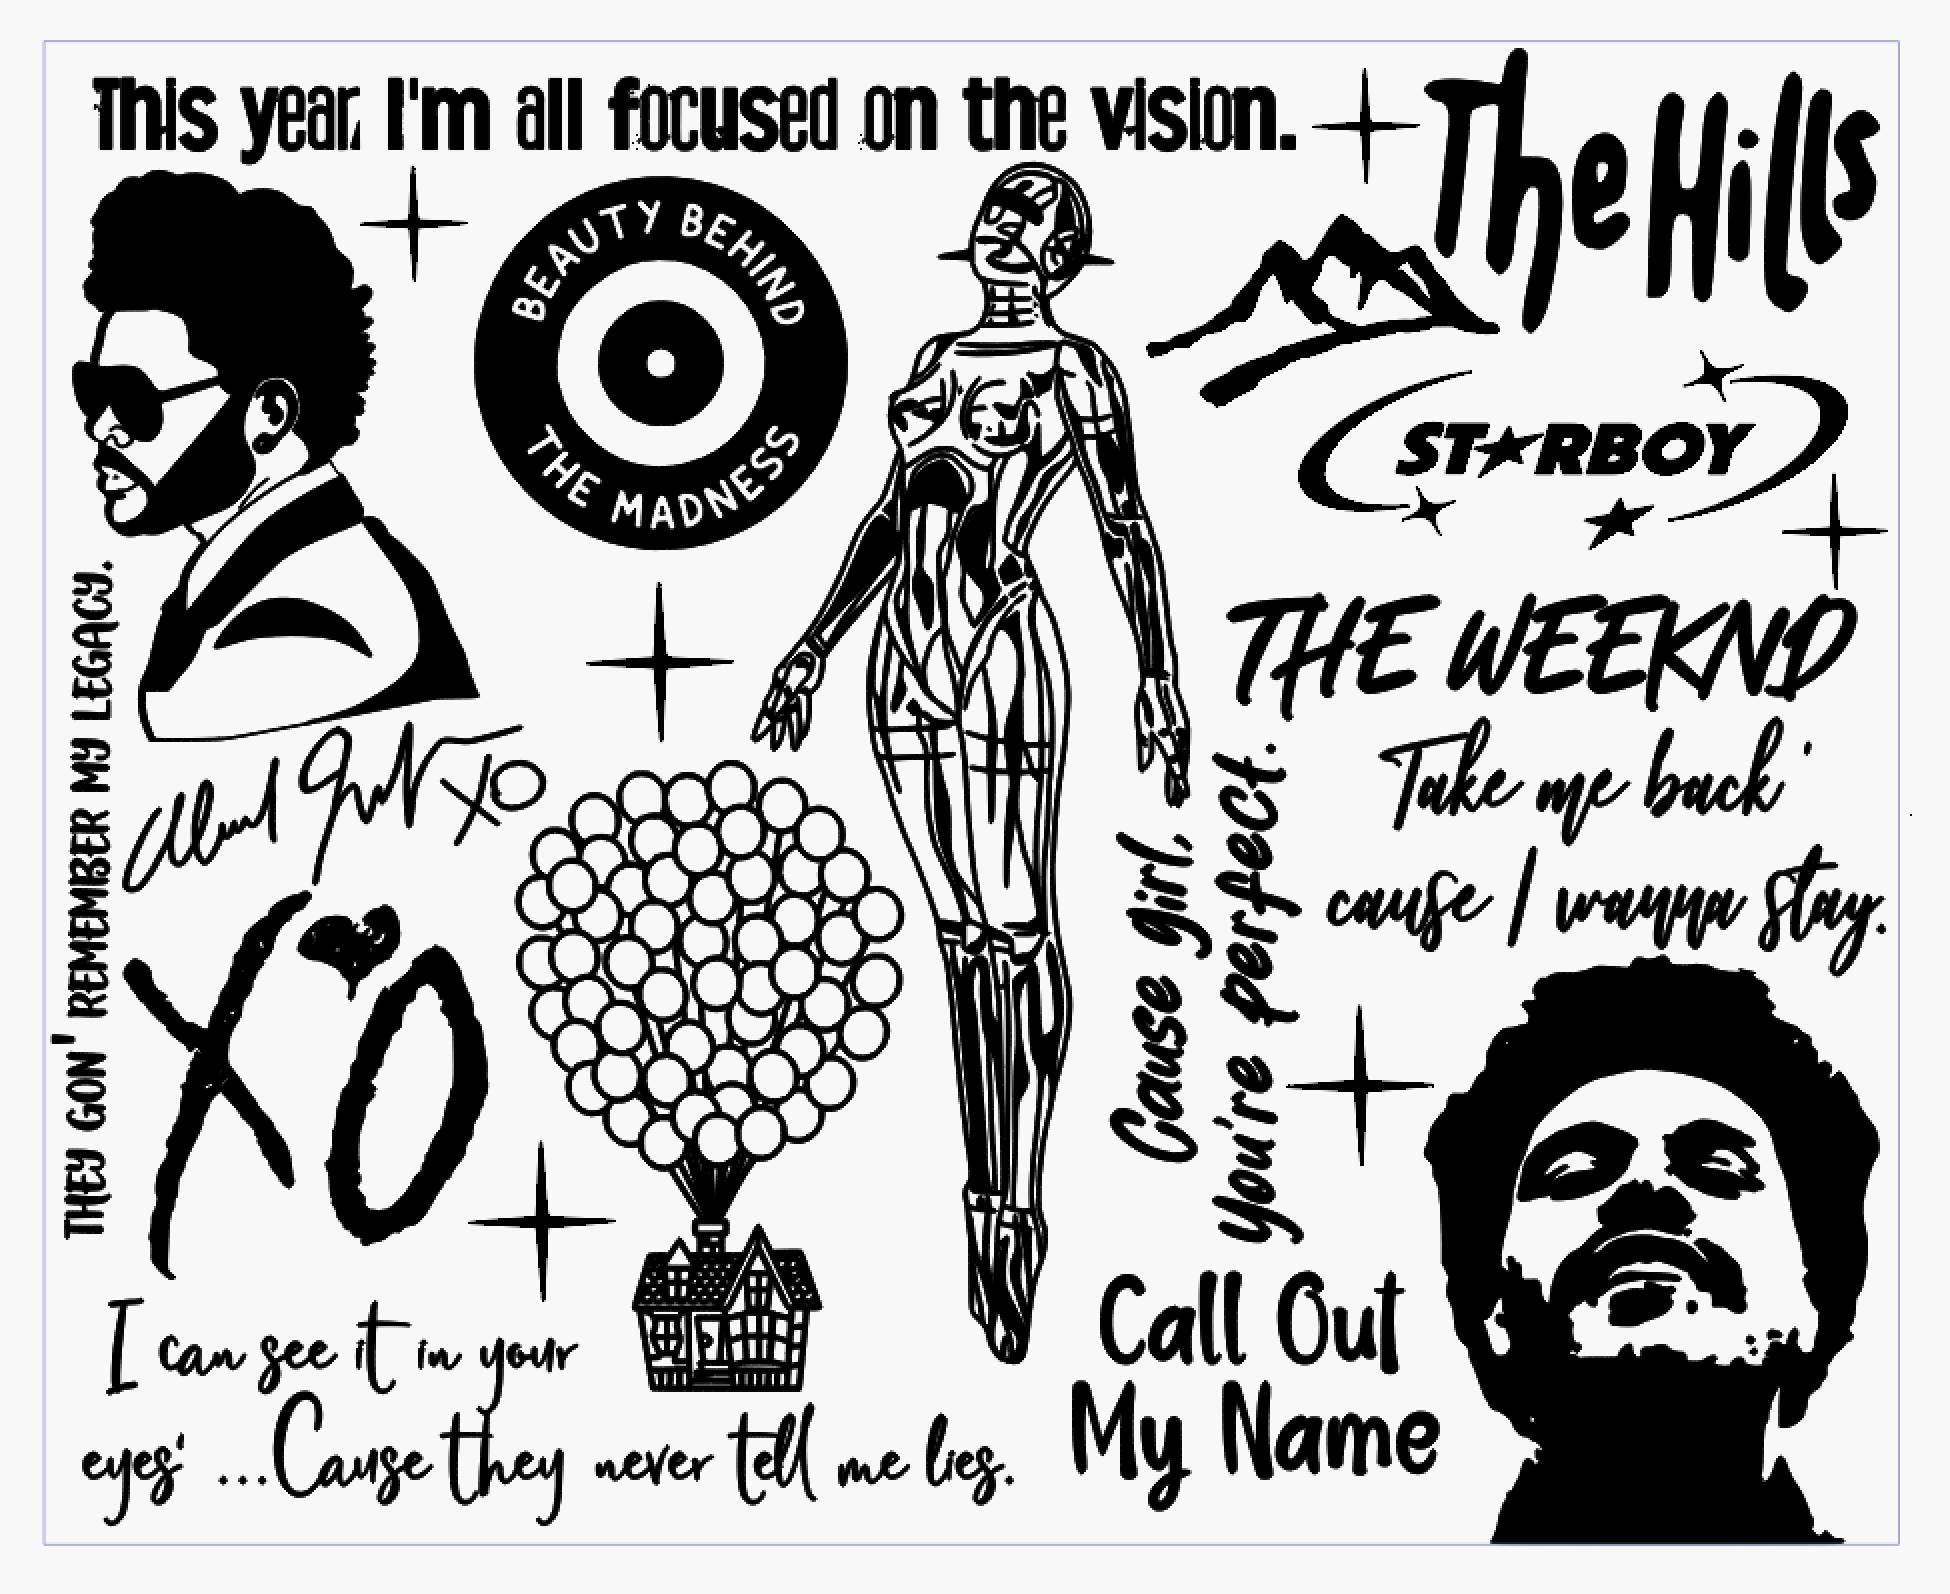 This year I'm all focused on the vision.
The Hills
BEAUTY BEHIND
THE MADNESS
STARBOY
THE WEEKND
THEY GON' REMEMBER MY LEGACY.
Take me back'
cause I wanna stay.
XO
Cause girl,
you're perfect.
XO
I can see it in your
eyes' ...Cause they never tell me lies.
Call Out
My Name